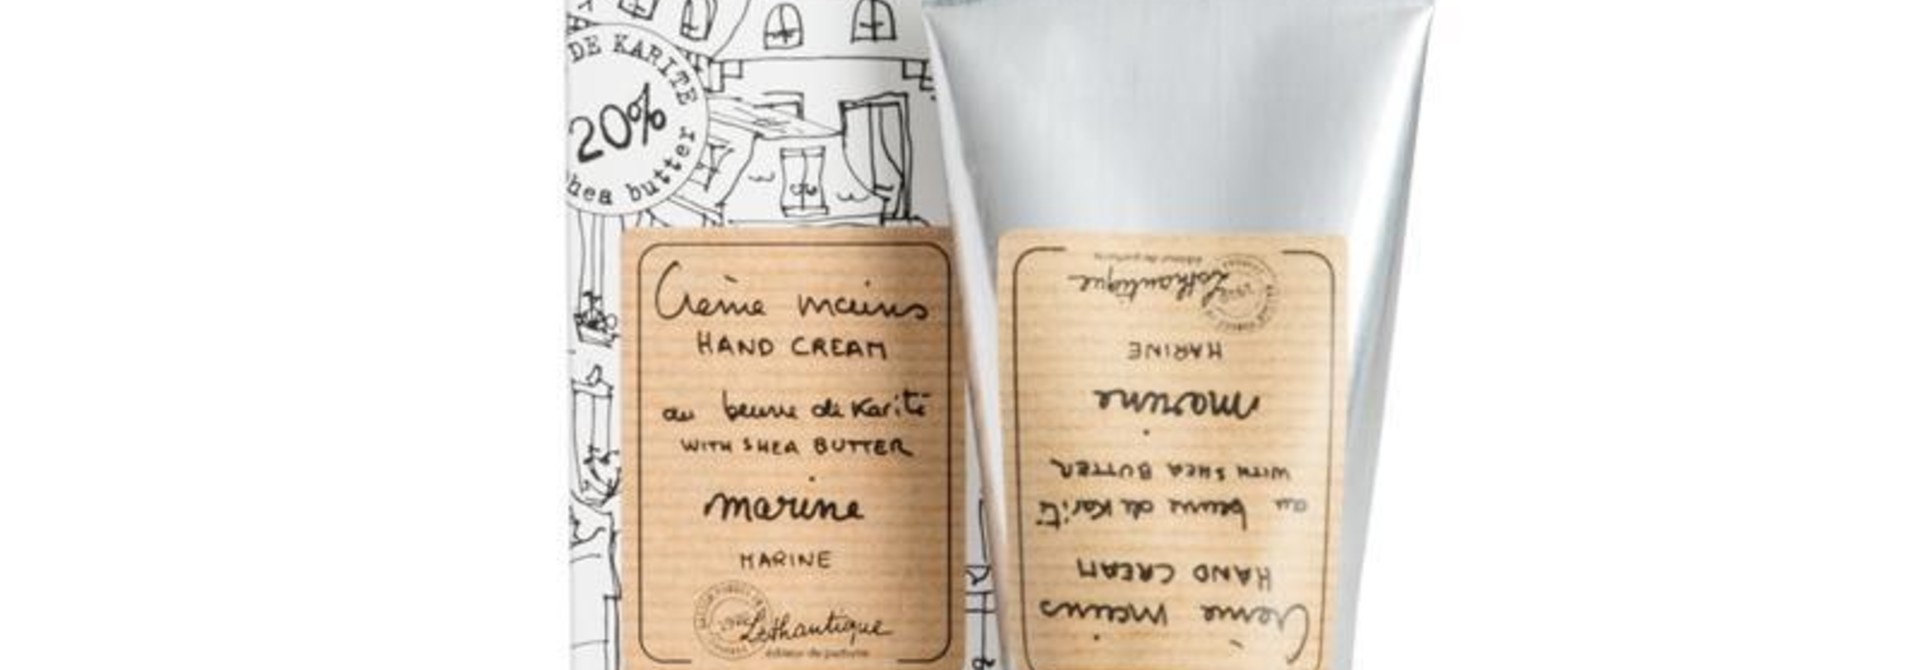 DE KARITE
20%
hea butter
Crème mains
HAND CREAM
au beurre de Karité
WITH SHEA BUTTER
marine
MARINE
Lothantique
éditeur de parfums
éditeur de parfums
Lothantique
MARINE
marine
WITH SHEA BUTTER
au beurre de Karité
HAND CREAM
Crème mains